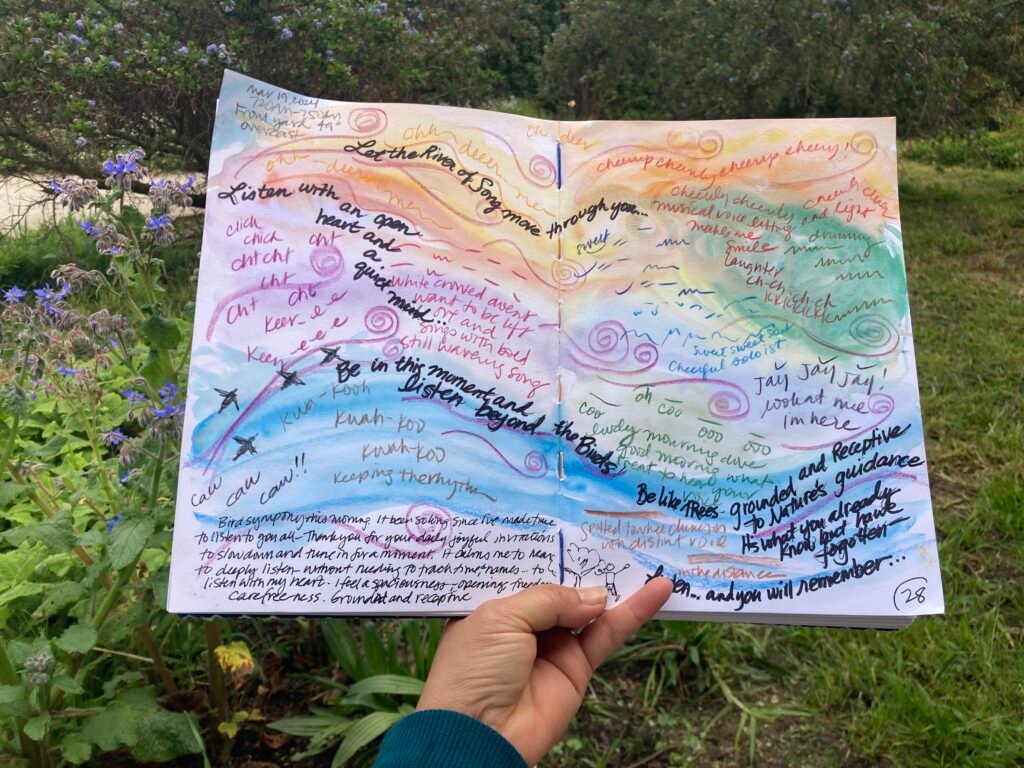 Mar 19, 2024
720am-750am
Front yard 49°
overcast
ohh~ deeer me
oh deer
ohh
-deeer me
me
Let the River of Song move through you...
Listen with an open
heart and
a
quick mind...
click
chick cht
cht cht
cht
cht cht
Keer-e
e
Keer-e-e
white crowned
want to be lift
out and
sings with bold
still wavering song
Be in this moment and
listen beyond the Birds.
Kooh
Kuah-Koo
Kuah-Koo
Keeping the rhythm
caw
caw
caw!!
Bird symphony this morning. It been so long since I've made time
to listen to you all- Thank you for your daily joyful invitations
to slow down and tune in for a moment. It calms me to hear
to deeply listen- without needing to track timeframes... to
listen with my heart. I feel a spaciousness- opening freedom
carefreeness. Grounded and receptive
cheerup cheerily cheerup cheery!
cheerily cheerily
musical voice lifting and light
makes me
smile
laughter
ch-ch ch-ch
kkkkkkkk
drumming
sweet
sweet sweet
Cheerful soloist
jay jay jay!
look at me
im here
oh coo
coo ooo ooo
lovely mourning dove
good morning
great to hear what
your
Be like Trees- grounded and Receptive
to Nature's guidance
It's what you already
know but have
forgotten-
Spotted towhee
with distinct voice
in the distance
Listen... and you will remember...
28